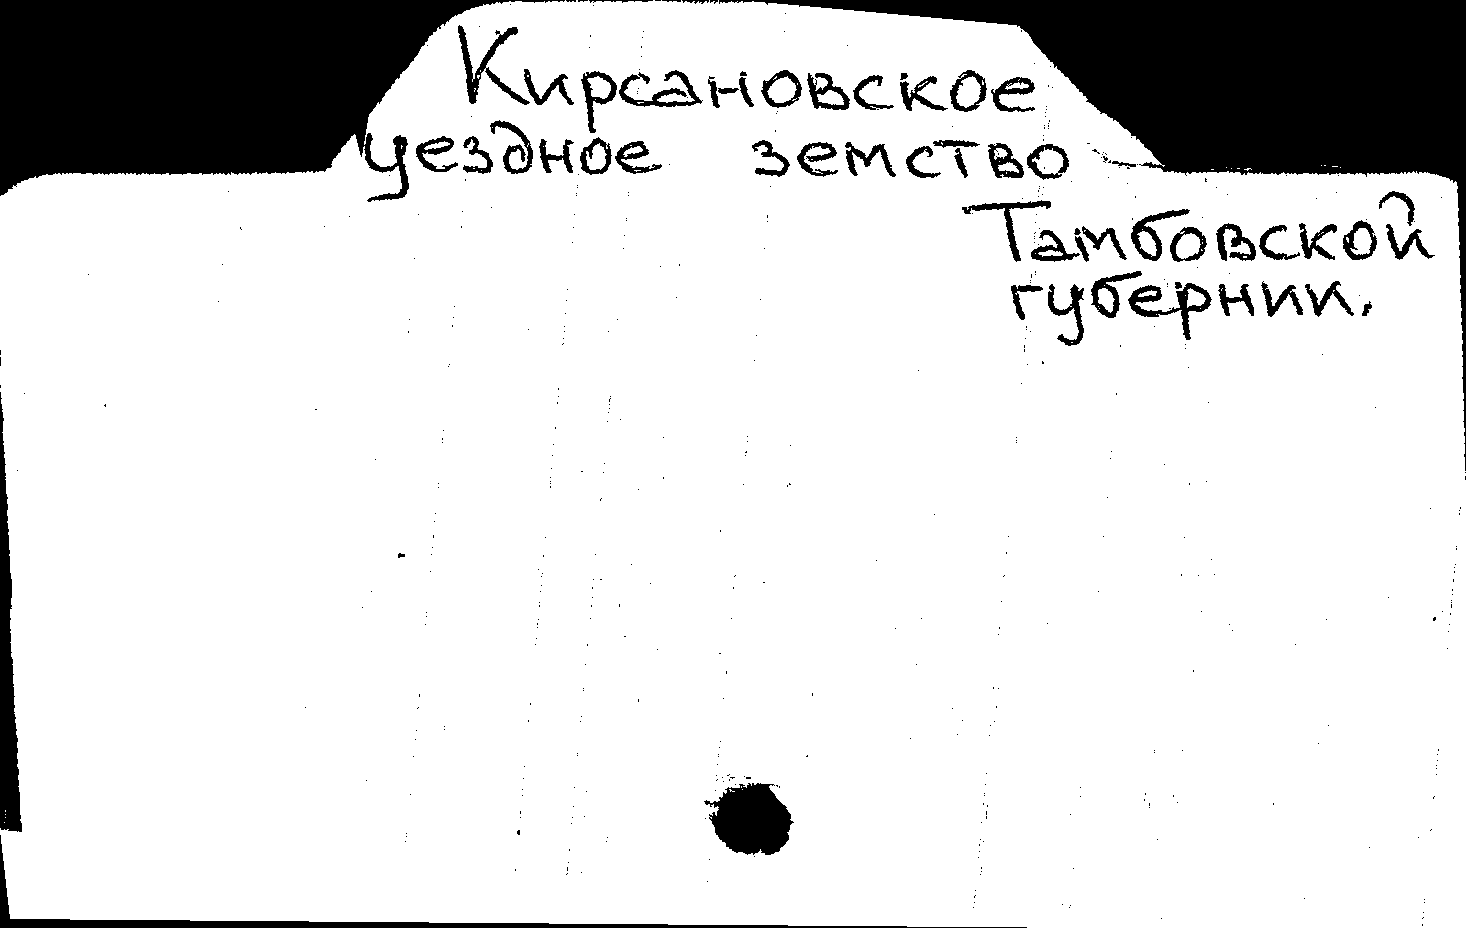 Кирсановское
уездное земство
Тамбовской
губернии.